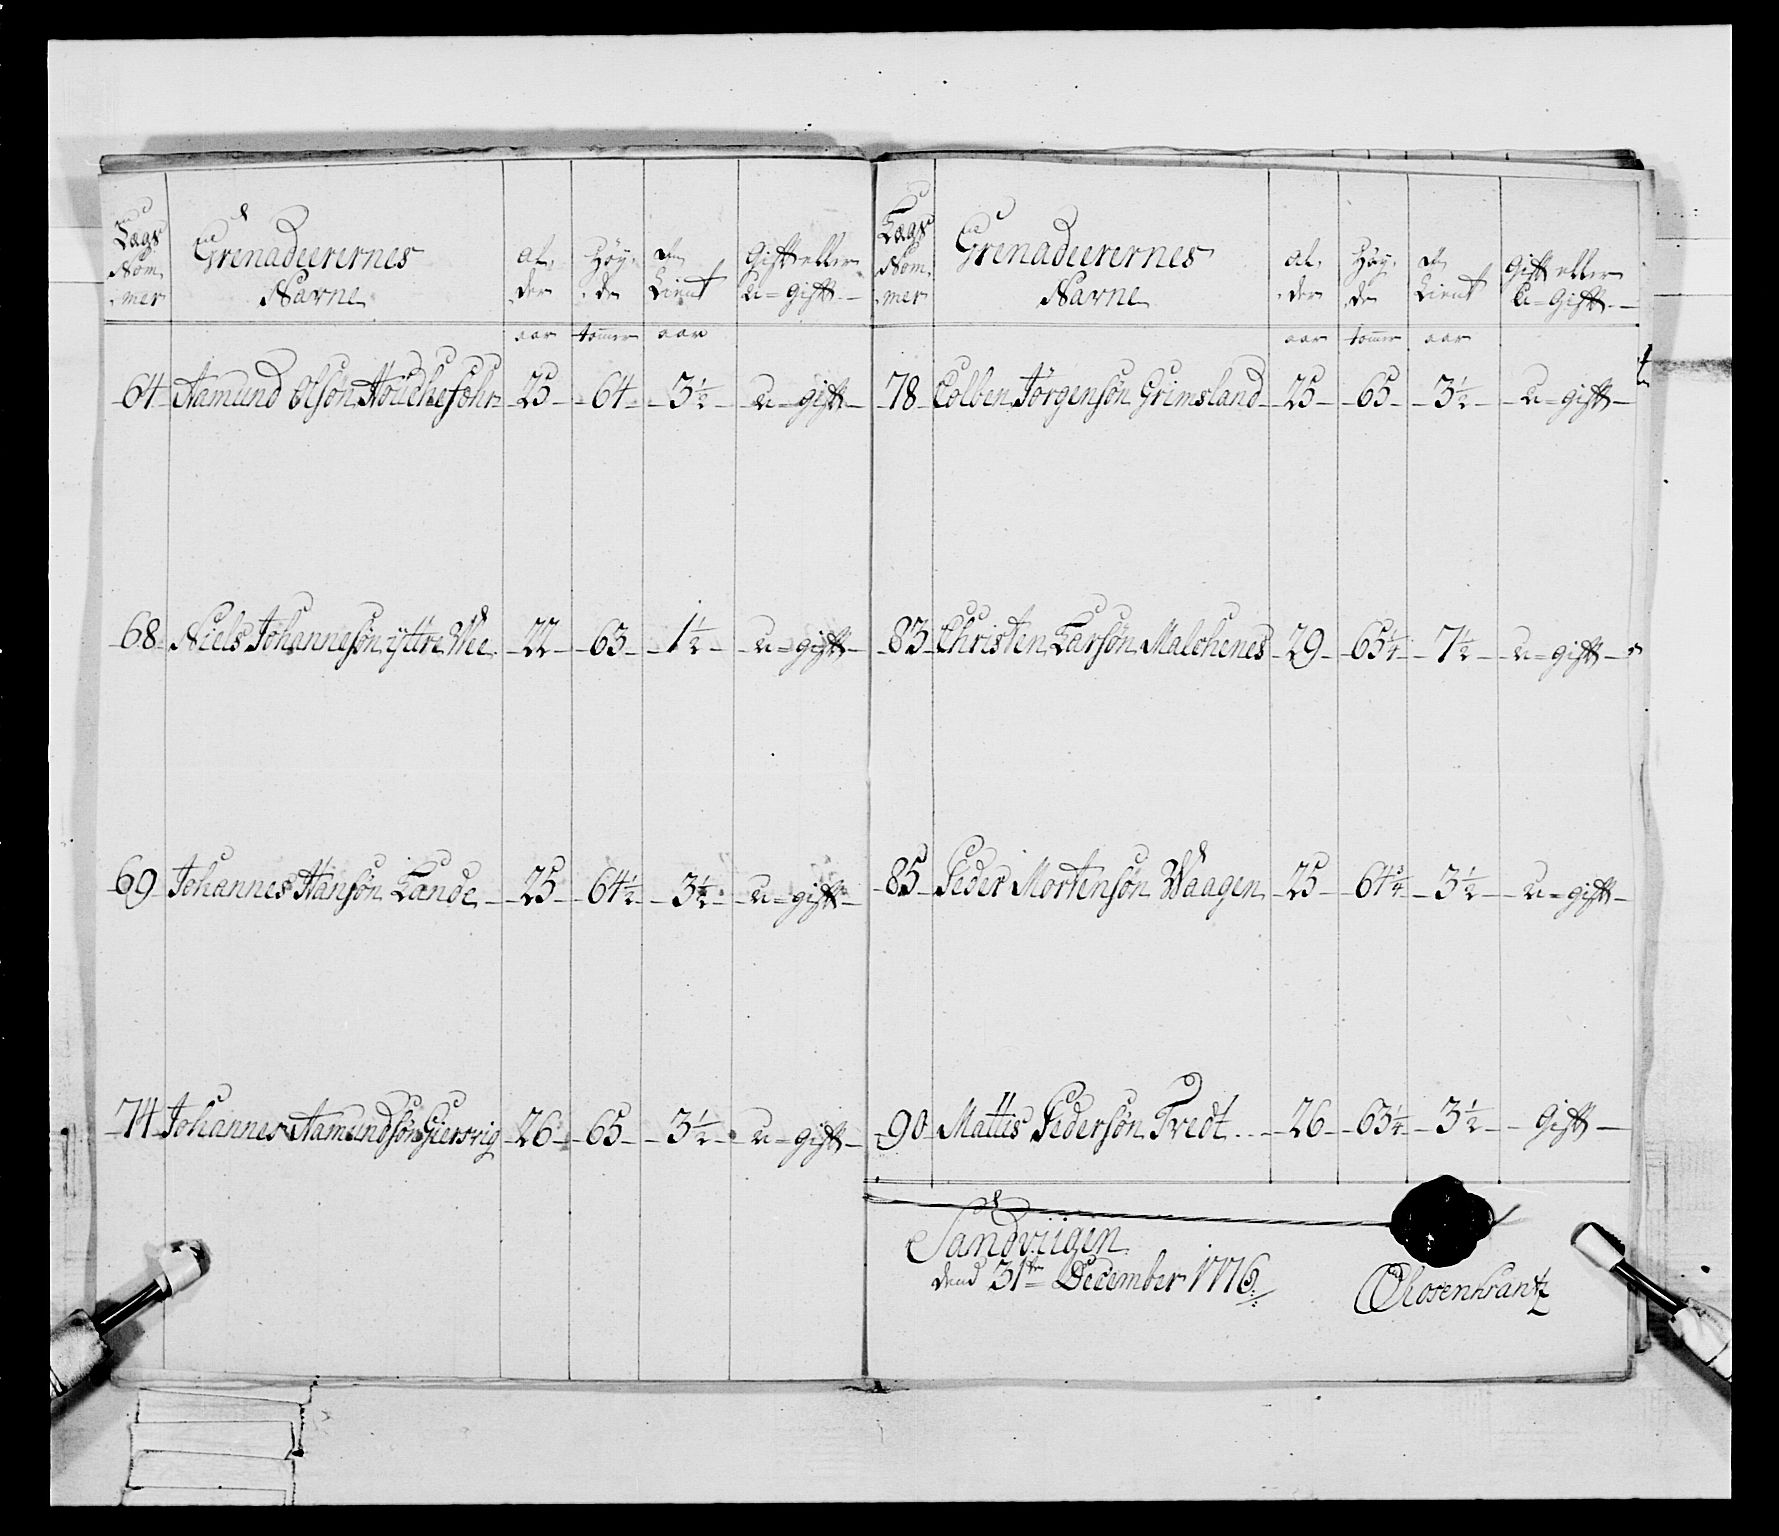 Lægs Nom- mer
Grenadeerernes Navne
al- der
Høy- de
Tient
Gift eller u=gift
aar tommer aar
64 Aamund Olsøn 25 64 3½ u=gift
68 Niels Johannesøn ÿttre Wee 22 63 1½ u=gift
69 Johannes Hansøn Lande 25 64½ 3½ u=gift
74 Johannes Aamundsøn Giersvig 26 65 3½ u=gift
Lægs Nom- mer
Grenadeerernes Navne
al- der
Høy- de
Tient
Gift eller u=gift
aar tommer aar
78 Colben Jörgensøn Grimsland 25 65 3½ u=gift
83 Christen Larsøn Malehenes 29 65¼ 7½ u=gift
85 Peder Mortensøn Waagen 25 64¾ 3½ u=gift
90 Mattis Pedersøn Tvedt 26 63¼ 3½ Gift
Sandviigen
dend 31te December 1776
Rosenkrantz